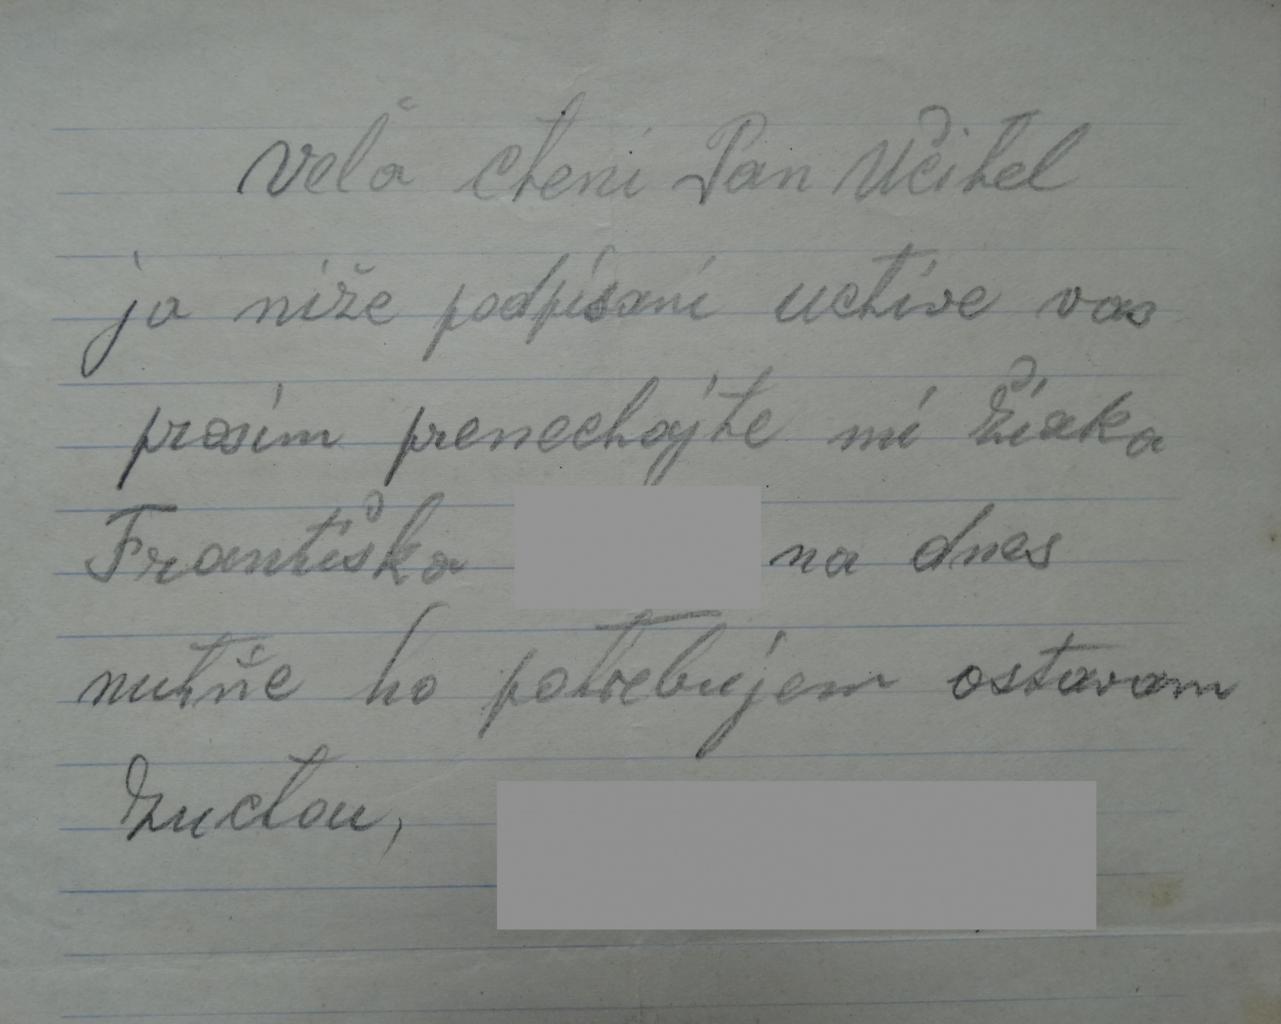 Velǎ cteni Pan Učitel
ja niže podpísani uctive vas
prosim prenechajte mi žiaka
Františka na dnes
nutňe ho potrebujem ostavam
zuctou,